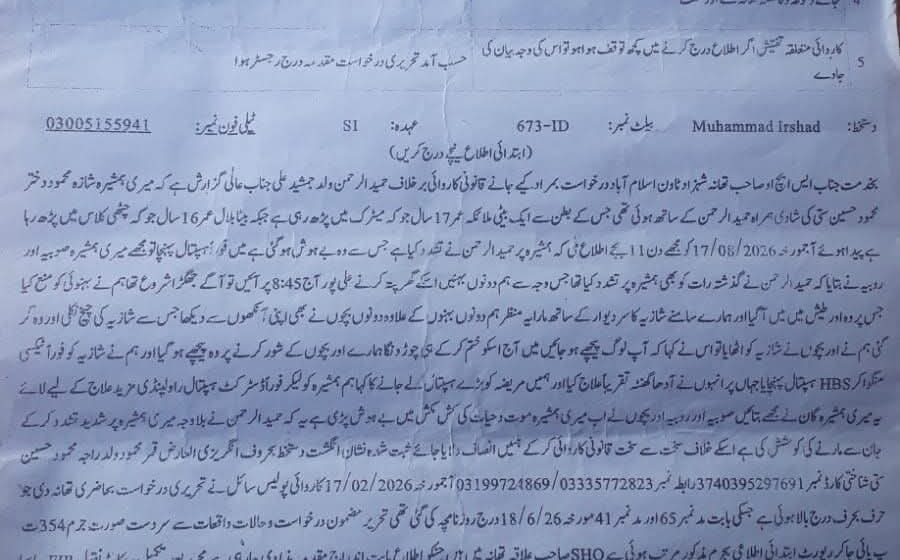 کاروائی متعلقہ تفتیش اگر اطلاع درج کرنے میں کچھ توقف ہوا ہو تو اس کی وجہ بیان کی جاوے
5
حسب آمد تحریری درخواست مقدمہ درج رجسٹر ہوا
دستخط: Muhammad Irshad بیلٹ نمبر: 673-ID عہدہ: SI ٹیلی فون نمبر: 03005155941
(ابتدائی اطلاع نیچے درج کریں)
بخدمت جناب ایس ایچ او صاحب تھانہ شہزاد ٹاون اسلام آباد درخواست بمراد کیے جانے قانونی کاروائی برخلاف حمید الرحمن ولد جمشید علی جناب عالی گزارش ہے کہ میری ہمشیرہ شازیہ محمود دختر
محمود حسین ستی کی شادی ہمراہ حمید الرحمن کے ساتھ ہوئی تھی جس کے بطن سے ایک بیٹی ملائکہ عمر 17 سال جو کہ میٹرک میں پڑھ رہی ہے جبکہ بیٹا بلال عمر 16 سال جو کہ چھٹی کلاس میں پڑھ رہا
ہے پیدا ہوئے آج مورخہ 17/08/2026 کو مجھے دن 11 بجے اطلاع ملی کہ ہمشیرہ پر حمید الرحمن نے تشدد کیا ہے جس سے وہ بے ہوش ہو گئی ہے میں فوراً ہسپتال پہنچا تو مجھے میری ہمشیرہ صوبیہ اور
روبیہ نے بتایا کہ حمید الرحمن نے گذشتہ رات کو بھی ہمشیرہ پر تشدد کیا تھا جس وجہ سے ہم دونوں بہنیں اسکے گھر پتہ کرنے علی پور آج 8:45 پر آئیں تو آگے جھگڑا شروع تھا ہم نے بہنوئی کو منع کیا
جس پر وہ اور طیش میں آگیا اور ہمارے سامنے شازیہ کا سر دیوار کے ساتھ مارا یہ منظر ہم دونوں بہنوں کے علاوہ دونوں بچوں نے بھی اپنی آنکھوں سے دیکھا جس سے شازیہ کی چیخ نکلی اور وہ گر
گئی ہم نے اور بچوں نے شازیہ کو اٹھایا تو اس نے کہا کہ آپ لوگ پیچھے ہو جائیں میں آج اسکو ختم کر کے ہی چھوڑونگا ہمارے اور بچوں کے شور کرنے پر وہ پیچھے ہو گیا اور ہم نے شازیہ کو فوراً ٹیکسی
منگوا کر HBS ہسپتال پہنچایا جہاں پر انہوں نے آدھا گھنٹہ تقریباً علاج کیا اور ہمیں مریضہ کو بڑے ہسپتال لے جانے کا کہا ہم ہمشیرہ کو لیکر فوراً ڈسٹرکٹ ہسپتال راولپنڈی مزید علاج کے لیے لائے
یہ میری ہمشیرہ گان نے مجھے بتائیں صوبیہ اور روبیہ اور بچوں نے اب میری ہمشیرہ موت و حیات کی کش مکش میں بے ہوش پڑی ہے یہ کہ حمید الرحمن نے بلا وجہ میری ہمشیرہ پر شدید تشدد کر کے
جان سے مارنے کی کوشش کی ہے اسکے خلاف سخت سے سخت قانونی کاروائی کر کے ہمیں انصاف دلایا جائے ثبت شدہ نشان انگشت دستخط بحروف انگریزی العارض قمر محمود ولد راجہ محمود حسین
ستی شناختی کارڈ نمبر 3740395297691 رابطہ نمبر 03199724869/03335772823 آج مورخہ 17/02/2026 کاروائی پولیس سائل نے تحریری درخواست بحاضری تھانہ دی جو
حرف بحرف درج بالا ہوئی ہے جسکی بابت مد نمبر 65 اور مد نمبر 41 مورخہ 18/6/26 درج روزنامچہ کی گئی تھی تحریر مضمون درخواست و حالات واقعات سے سردست صورت جرم 354 ت